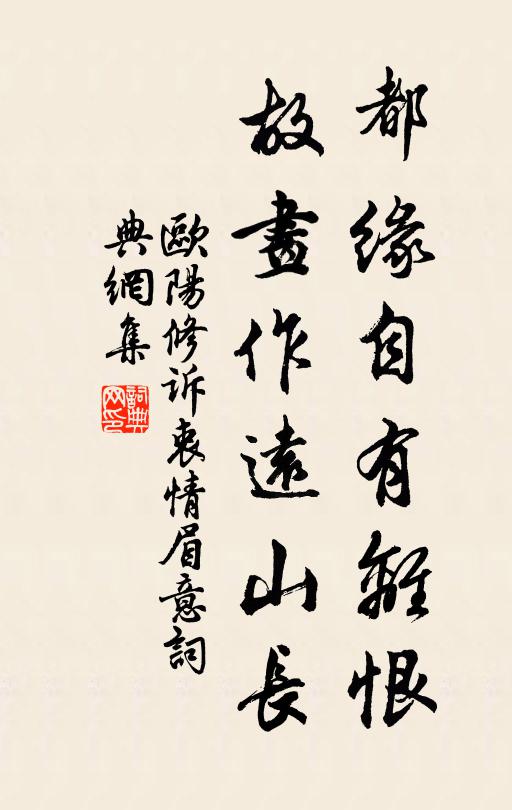 都緣自有離恨
故畫作遠山長
歐陽修訴衷情眉意詞
典網集
詞典網印